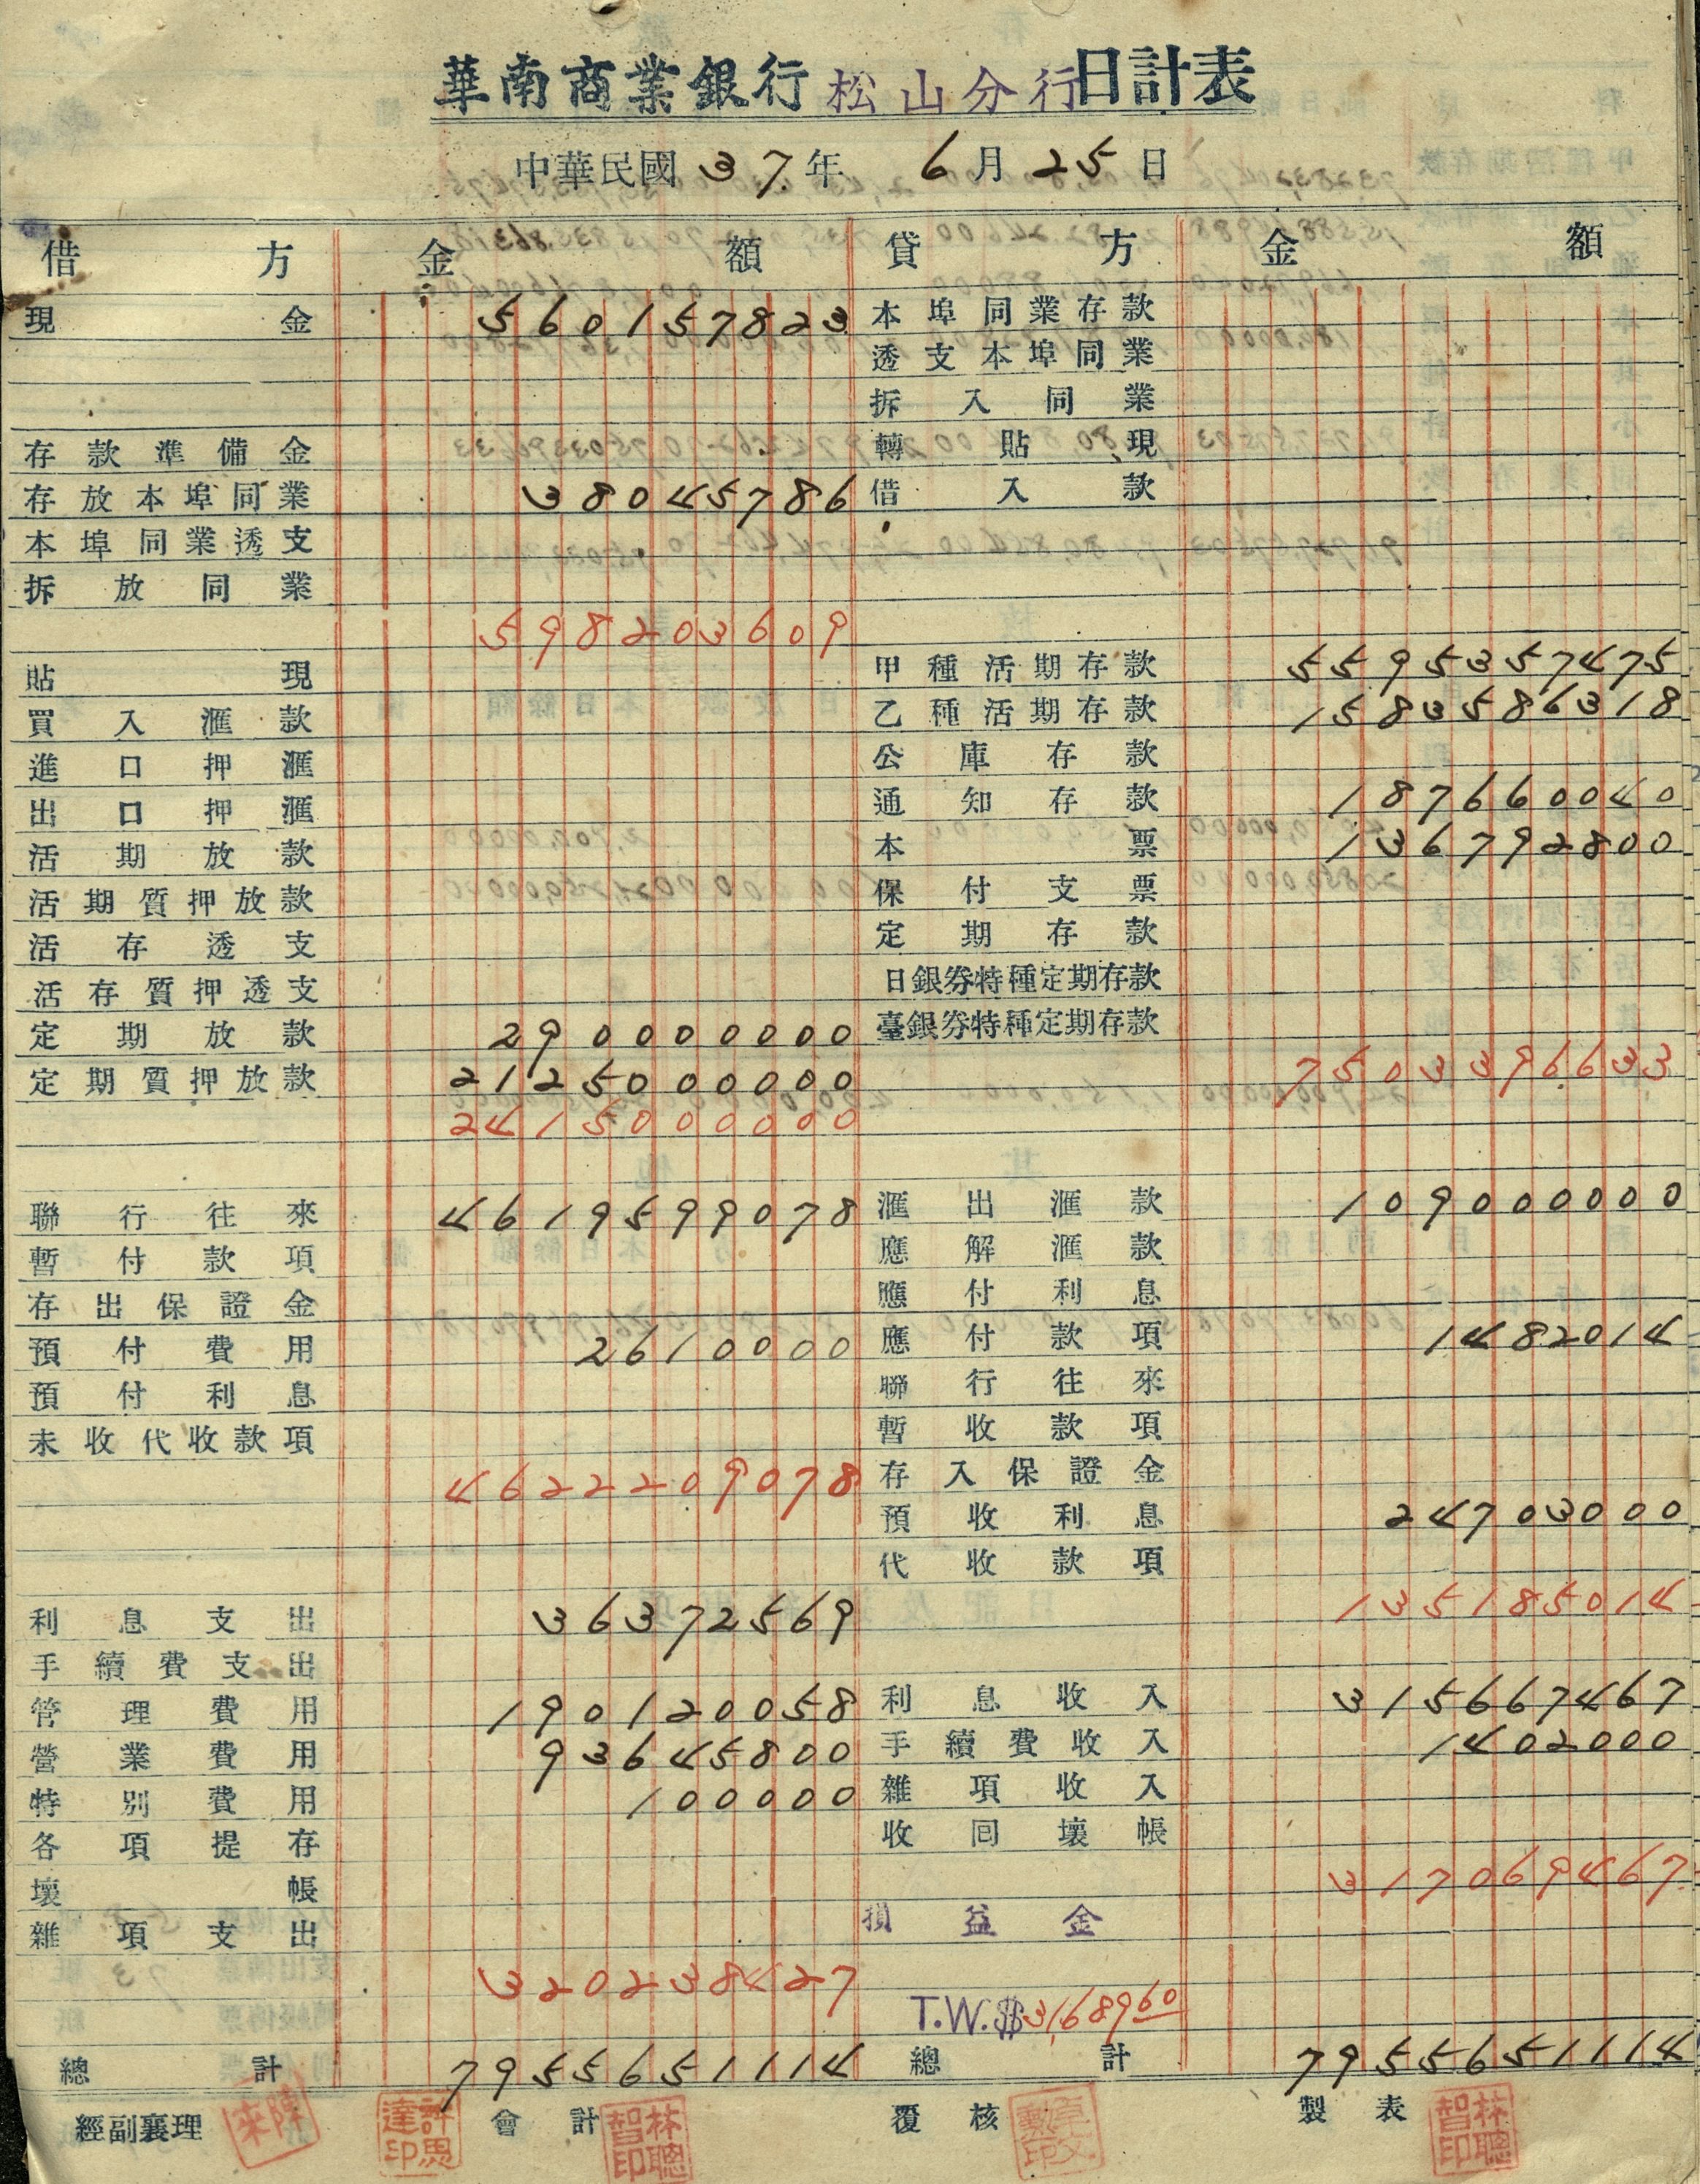 華南商業銀行松山分行日計表
中華民國37年 6月25日
借方 金額 貸方 金額
現金 560157823 本埠同業存款
透支本埠同業
拆入同業
存款準備金 轉貼現
存放本埠同業 38045786 借入款
本埠同業透支
拆放同業
598203609
貼現 甲種活期存款 5595357475
買入滙款 乙種活期存款 1583586318
進口押滙 公庫存款
出口押滙 通知存款 187660040
活期放款 本票 136792800
活期質押放款 保付支票
活存透支 定期存款
活存質押透支 日銀券特種定期存款
定期放款 290000000 臺銀券特種定期存款
定期質押放款 2125000000 7503396633
2415000000
聯行往來 4619599078 滙出滙款 109000000
暫付款項 應解滙款
存出保證金 應付利息
預付費用 2610000 應付款項 1482014
預付利息 聯行往來
未收代收款項 暫收款項
4622209078 存入保證金
預收利息 24703000
代收款項
利息支出 36372569 135185014
手續費支出
管理費用 190120058 利息收入 315667467
營業費用 93645800 手續費收入 1402000
特別費用 100000 雜項收入
各項提存 收回壞帳
壞帳 317069467
雜項支出 損益金
320238427
T.W.$31,68960
總計 7955651114 總計 7955651114
經副襄理 會計 林聰智印 覆核 製表 林聰智印